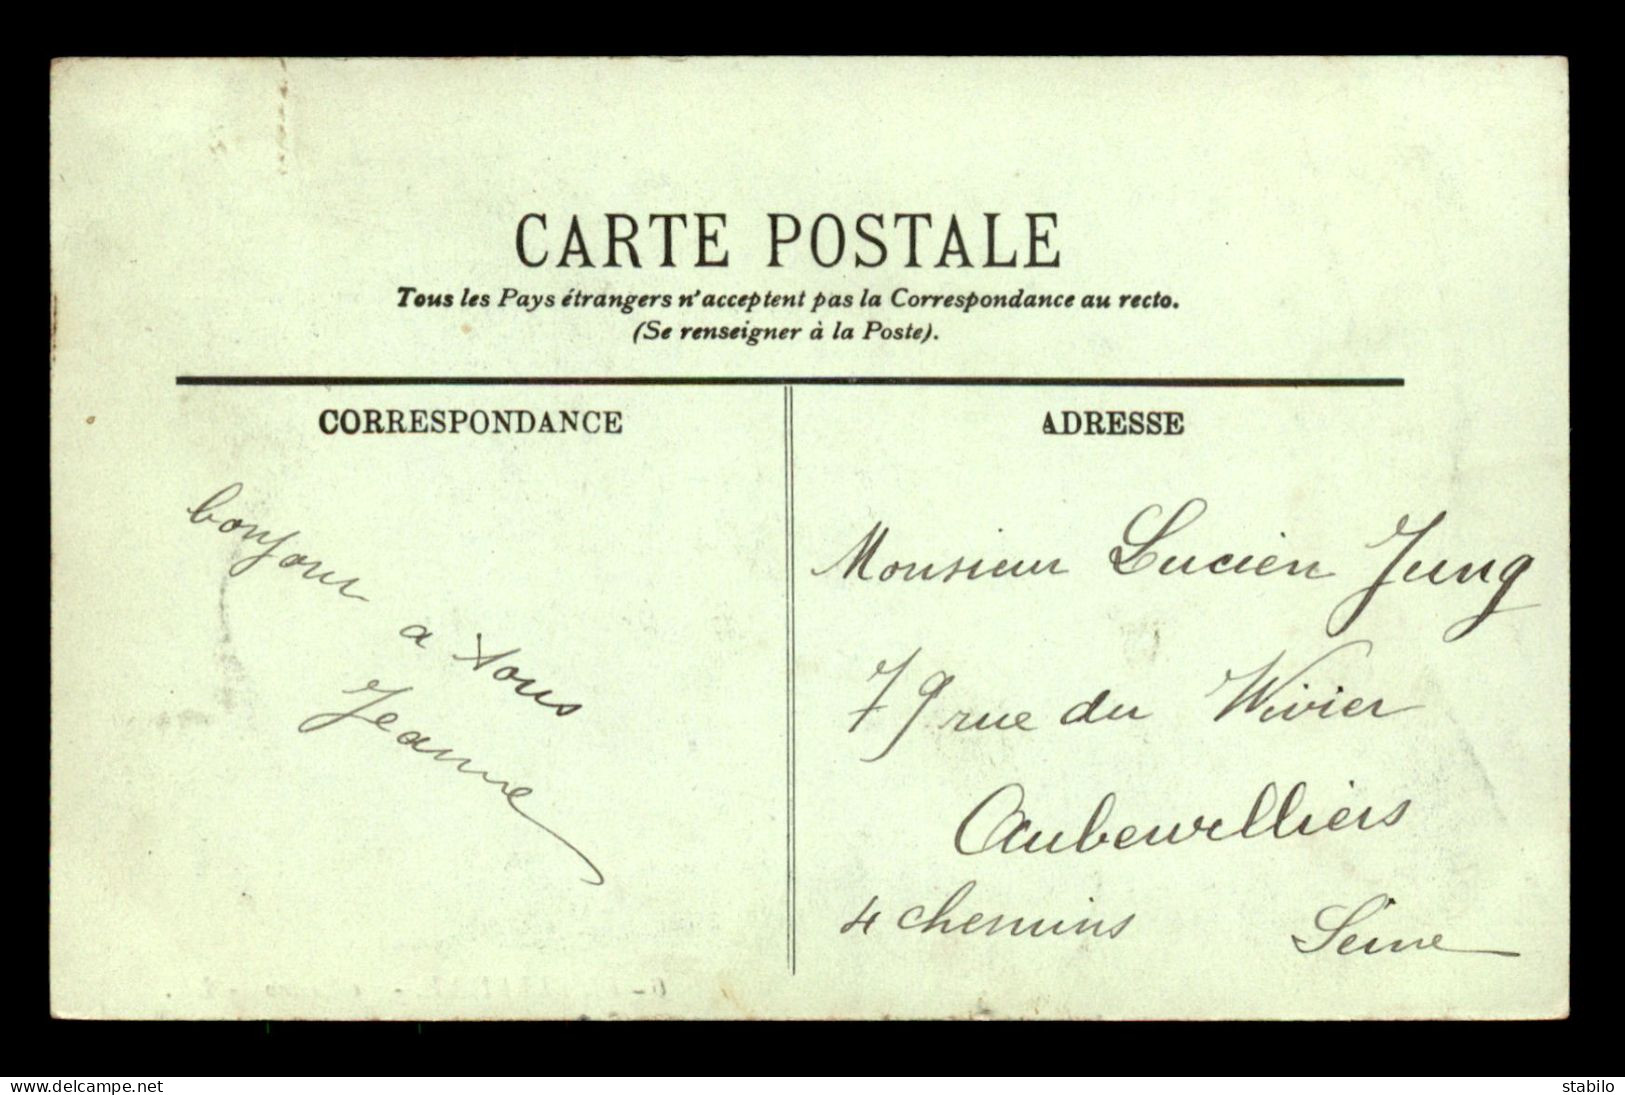 CARTE POSTALE
Tous les Pays étrangers n'acceptent pas la Correspondance au recto.
(Se renseigner à la Poste).
CORRESPONDANCE
bonjour
a tous
Jeanne
ADRESSE
Monsieur Lucien Jung
79 rue du Wivier
Aubervilliers
4 chemins Seine
www.delcampe.net
stabilo